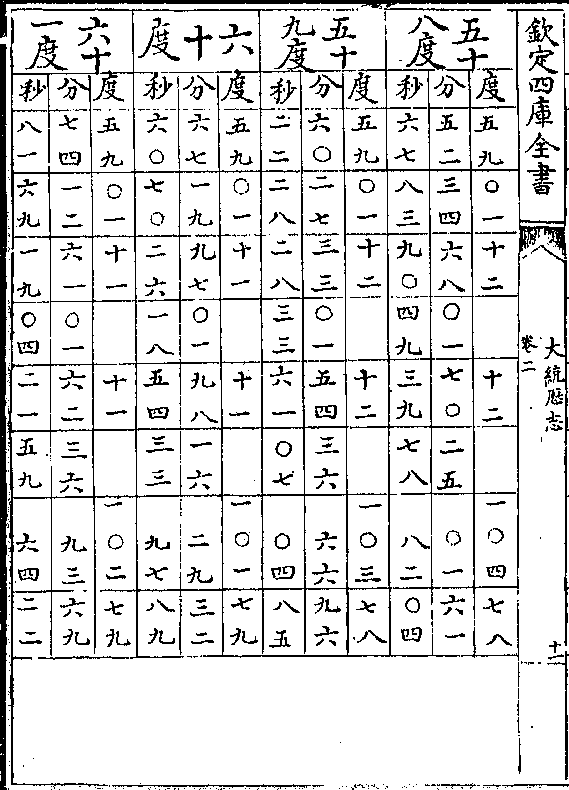 欽定四庫全書
大統厯志
卷二
十一
五十八度
度 五九 〇一 十二 十二 一〇四 七八
分 五二 三四 六八 〇一 七〇 二五 〇一 六一
秒 六七 八三 九〇 四九 三九 七八 八二 〇四
五十九度
度 五九 〇一 十二 十二 一〇三 七八
分 六〇 二七 三三 〇一 五四 三六 六六 九六
秒 二二 二八 二八 三三 六一 〇七 〇四 八五
六十度
度 五九 〇一 十一 十一 一〇一 七九
分 六七 一九 九七 〇一 九八 一六 二九 三二
秒 六〇 七〇 二六 一八 五四 三三 九七 八九
六十一度
度 五九 〇一 十一 十一 一〇二 七九
分 七四 一二 六一 〇一 六二 三六 九三 六九
秒 八一 六九 一九 〇四 二一 五九 六四 二二